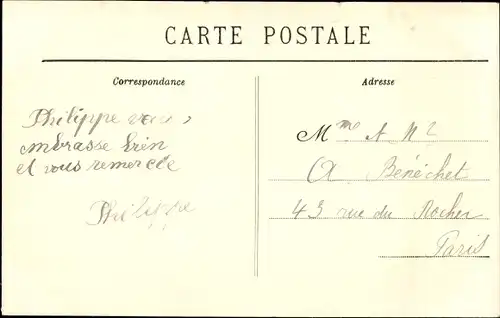 CARTE POSTALE
Correspondance
Philippe vous
embrasse bien
et vous remercie
Philippe
Adresse
Mme A Mr
A Bénéchet
43 rue du Rocher
Paris